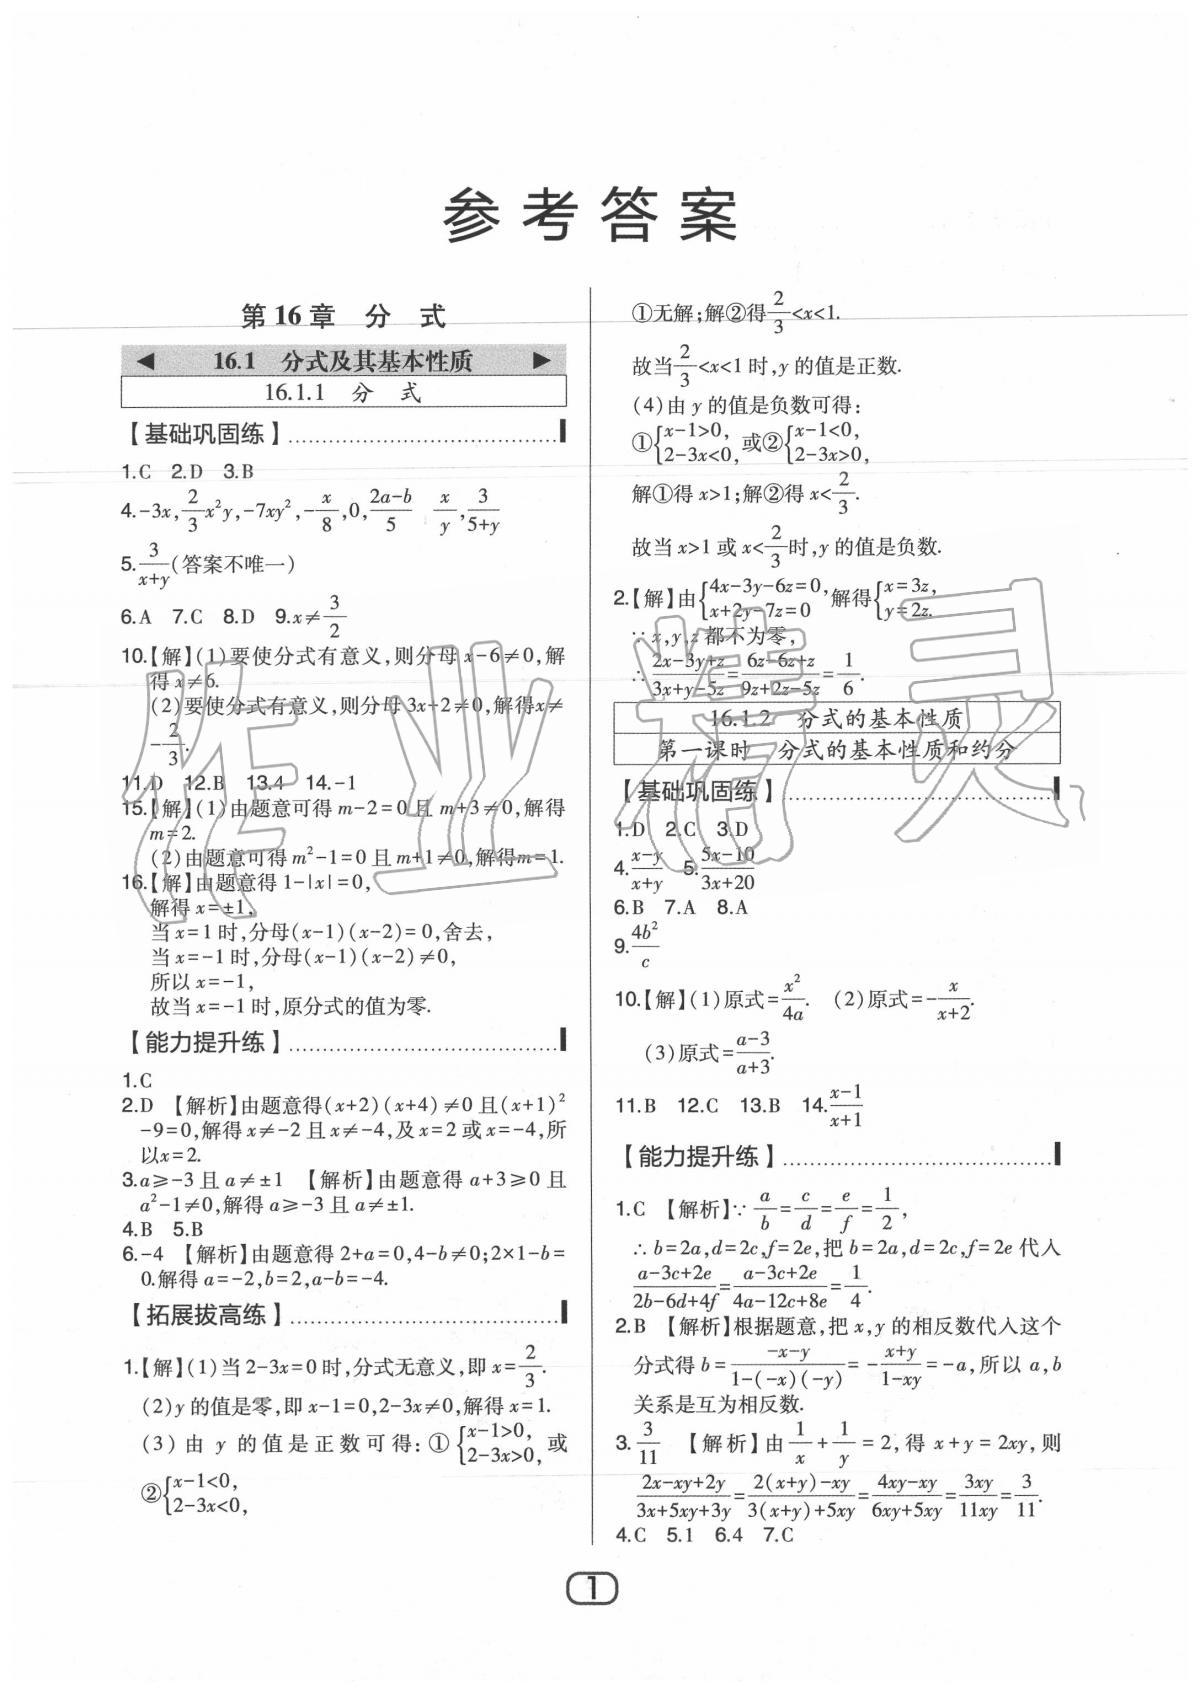 参考答案
第16章 分 式
◀ 16.1 分式及其基本性质 ▶
16.1.1 分 式
【基础巩固练】
1.C 2.D 3.B
4.-3x, 2/3 x²y, -7xy², -x/8, 0, (2a-b)/5  x/y, 3/(5+y)
5. 3/(x+y) (答案不唯一)
6.A 7.C 8.D 9.x≠3/2
10.【解】(1)要使分式有意义,则分母x-6≠0,解
得x≠6.
(2)要使分式有意义,则分母3x+2≠0,解得x≠
-2/3.
11.D 12.B 13.4 14.-1
15.【解】(1)由题意可得m-2=0且m+3≠0,解得
m=2.
(2)由题意可得m²-1=0且m+1≠0,解得m=1.
16.【解】由题意得1-|x|=0,
解得x=±1,
当x=1时,分母(x-1)(x-2)=0,舍去,
当x=-1时,分母(x-1)(x-2)≠0,
所以x=-1,
故当x=-1时,原分式的值为零.
【能力提升练】
1.C
2.D 【解析】由题意得(x+2)(x+4)≠0且(x+1)²
-9=0,解得x≠-2且x≠-4,及x=2或x=-4,所
以x=2.
3.a≥-3且a≠±1 【解析】由题意得a+3≥0且
a²-1≠0,解得a≥-3且a≠±1.
4.B 5.B
6.-4 【解析】由题意得2+a=0,4-b≠0;2×1-b=
0.解得a=-2,b=2,a-b=-4.
【拓展拔高练】
1.【解】(1)当2-3x=0时,分式无意义,即x=2/3.
(2)y的值是零,即x-1=0,2-3x≠0,解得x=1.
(3)由y的值是正数可得:①{x-1>0, 2-3x>0,或
②{x-1<0, 2-3x<0,
①无解;解②得2/3<x<1.
故当2/3<x<1时,y的值是正数.
(4)由y的值是负数可得:
①{x-1>0, 2-3x<0,或②{x-1<0, 2-3x>0,
解①得x>1;解②得x<2/3.
故当x>1或x<2/3时,y的值是负数.
2.【解】由{4x-3y-6z=0, x+2y-7z=0 解得{x=3z, y=2z.
∵x,y,z都不为零,
∴(2x-3y+z)/(3x+y-5z)=(6z-6z+z)/(9z+2z-5z)=1/6.
16.1.2 分式的基本性质
第一课时 分式的基本性质和约分
【基础巩固练】
1.D 2.C 3.D
4.(x-y)/(x+y) 5.(5x-10)/(3x+20)
6.B 7.A 8.A
9.4b²/c
10.【解】(1)原式=x²/4a. (2)原式=-x/(x+2).
(3)原式=(a-3)/(a+3).
11.B 12.C 13.B 14.(x-1)/(x+1)
【能力提升练】
1.C 【解析】∵a/b=c/d=e/f=1/2,
∴b=2a,d=2c,f=2e,把b=2a,d=2c,f=2e代入
(a-3c+2e)/(2b-6d+4f)=(a-3c+2e)/(4a-12c+8e)=1/4.
2.B 【解析】根据题意,把x,y的相反数代入这个
分式得b=(-x-y)/(1-(-x)(-y))=-(x+y)/(1-xy)=-a,所以a,b
关系是互为相反数.
3.3/11 【解析】由1/x+1/y=2,得x+y=2xy,则
(2x-xy+2y)/(3x+5xy+3y)=(2(x+y)-xy)/(3(x+y)+5xy)=(4xy-xy)/(6xy+5xy)=3xy/11xy=3/11.
4.C 5.1 6.4 7.C
1
作业精灵